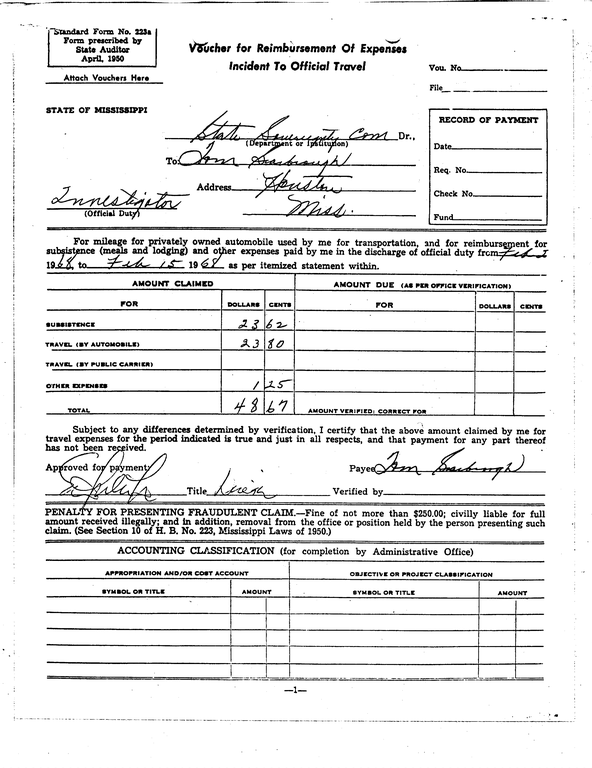 Standard Form No. 223a
Form prescribed by
State Auditor
April, 1950
Attach Vouchers Here
Voucher for Reimbursement Of Expenses
Incident To Official Travel
Vou. No.
File
STATE OF MISSISSIPPI
State Sovereignty Com Dr.,
(Department or Institution)
To: Tom Scarbrough
Address Houston
Miss.
Investigator
(Official Duty)
RECORD OF PAYMENT
Date
Req. No.
Check No.
Fund
For mileage for privately owned automobile used by me for transportation, and for reimbursement for
subsistence (meals and lodging) and other expenses paid by me in the discharge of official duty from Feb 1
1968, to Feb 15 1968 as per itemized statement within.
AMOUNT CLAIMED AMOUNT DUE (AS PER OFFICE VERIFICATION)
FOR DOLLARS CENTS FOR DOLLARS CENTS
SUBSISTENCE 23 62
TRAVEL (BY AUTOMOBILE) 23 80
TRAVEL (BY PUBLIC CARRIER)
OTHER EXPENSES 1 25
TOTAL 48 67 AMOUNT VERIFIED: CORRECT FOR
Subject to any differences determined by verification, I certify that the above amount claimed by me for
travel expenses for the period indicated is true and just in all respects, and that payment for any part thereof
has not been received.
Approved for payment: Payee Tom Scarbrough
Title Verified by
PENALTY FOR PRESENTING FRAUDULENT CLAIM.—Fine of not more than $250.00; civilly liable for full
amount received illegally; and in addition, removal from the office or position held by the person presenting such
claim. (See Section 10 of H. B. No. 223, Mississippi Laws of 1950.)
ACCOUNTING CLASSIFICATION (for completion by Administrative Office)
APPROPRIATION AND/OR COST ACCOUNT OBJECTIVE OR PROJECT CLASSIFICATION
SYMBOL OR TITLE AMOUNT SYMBOL OR TITLE AMOUNT
—1—